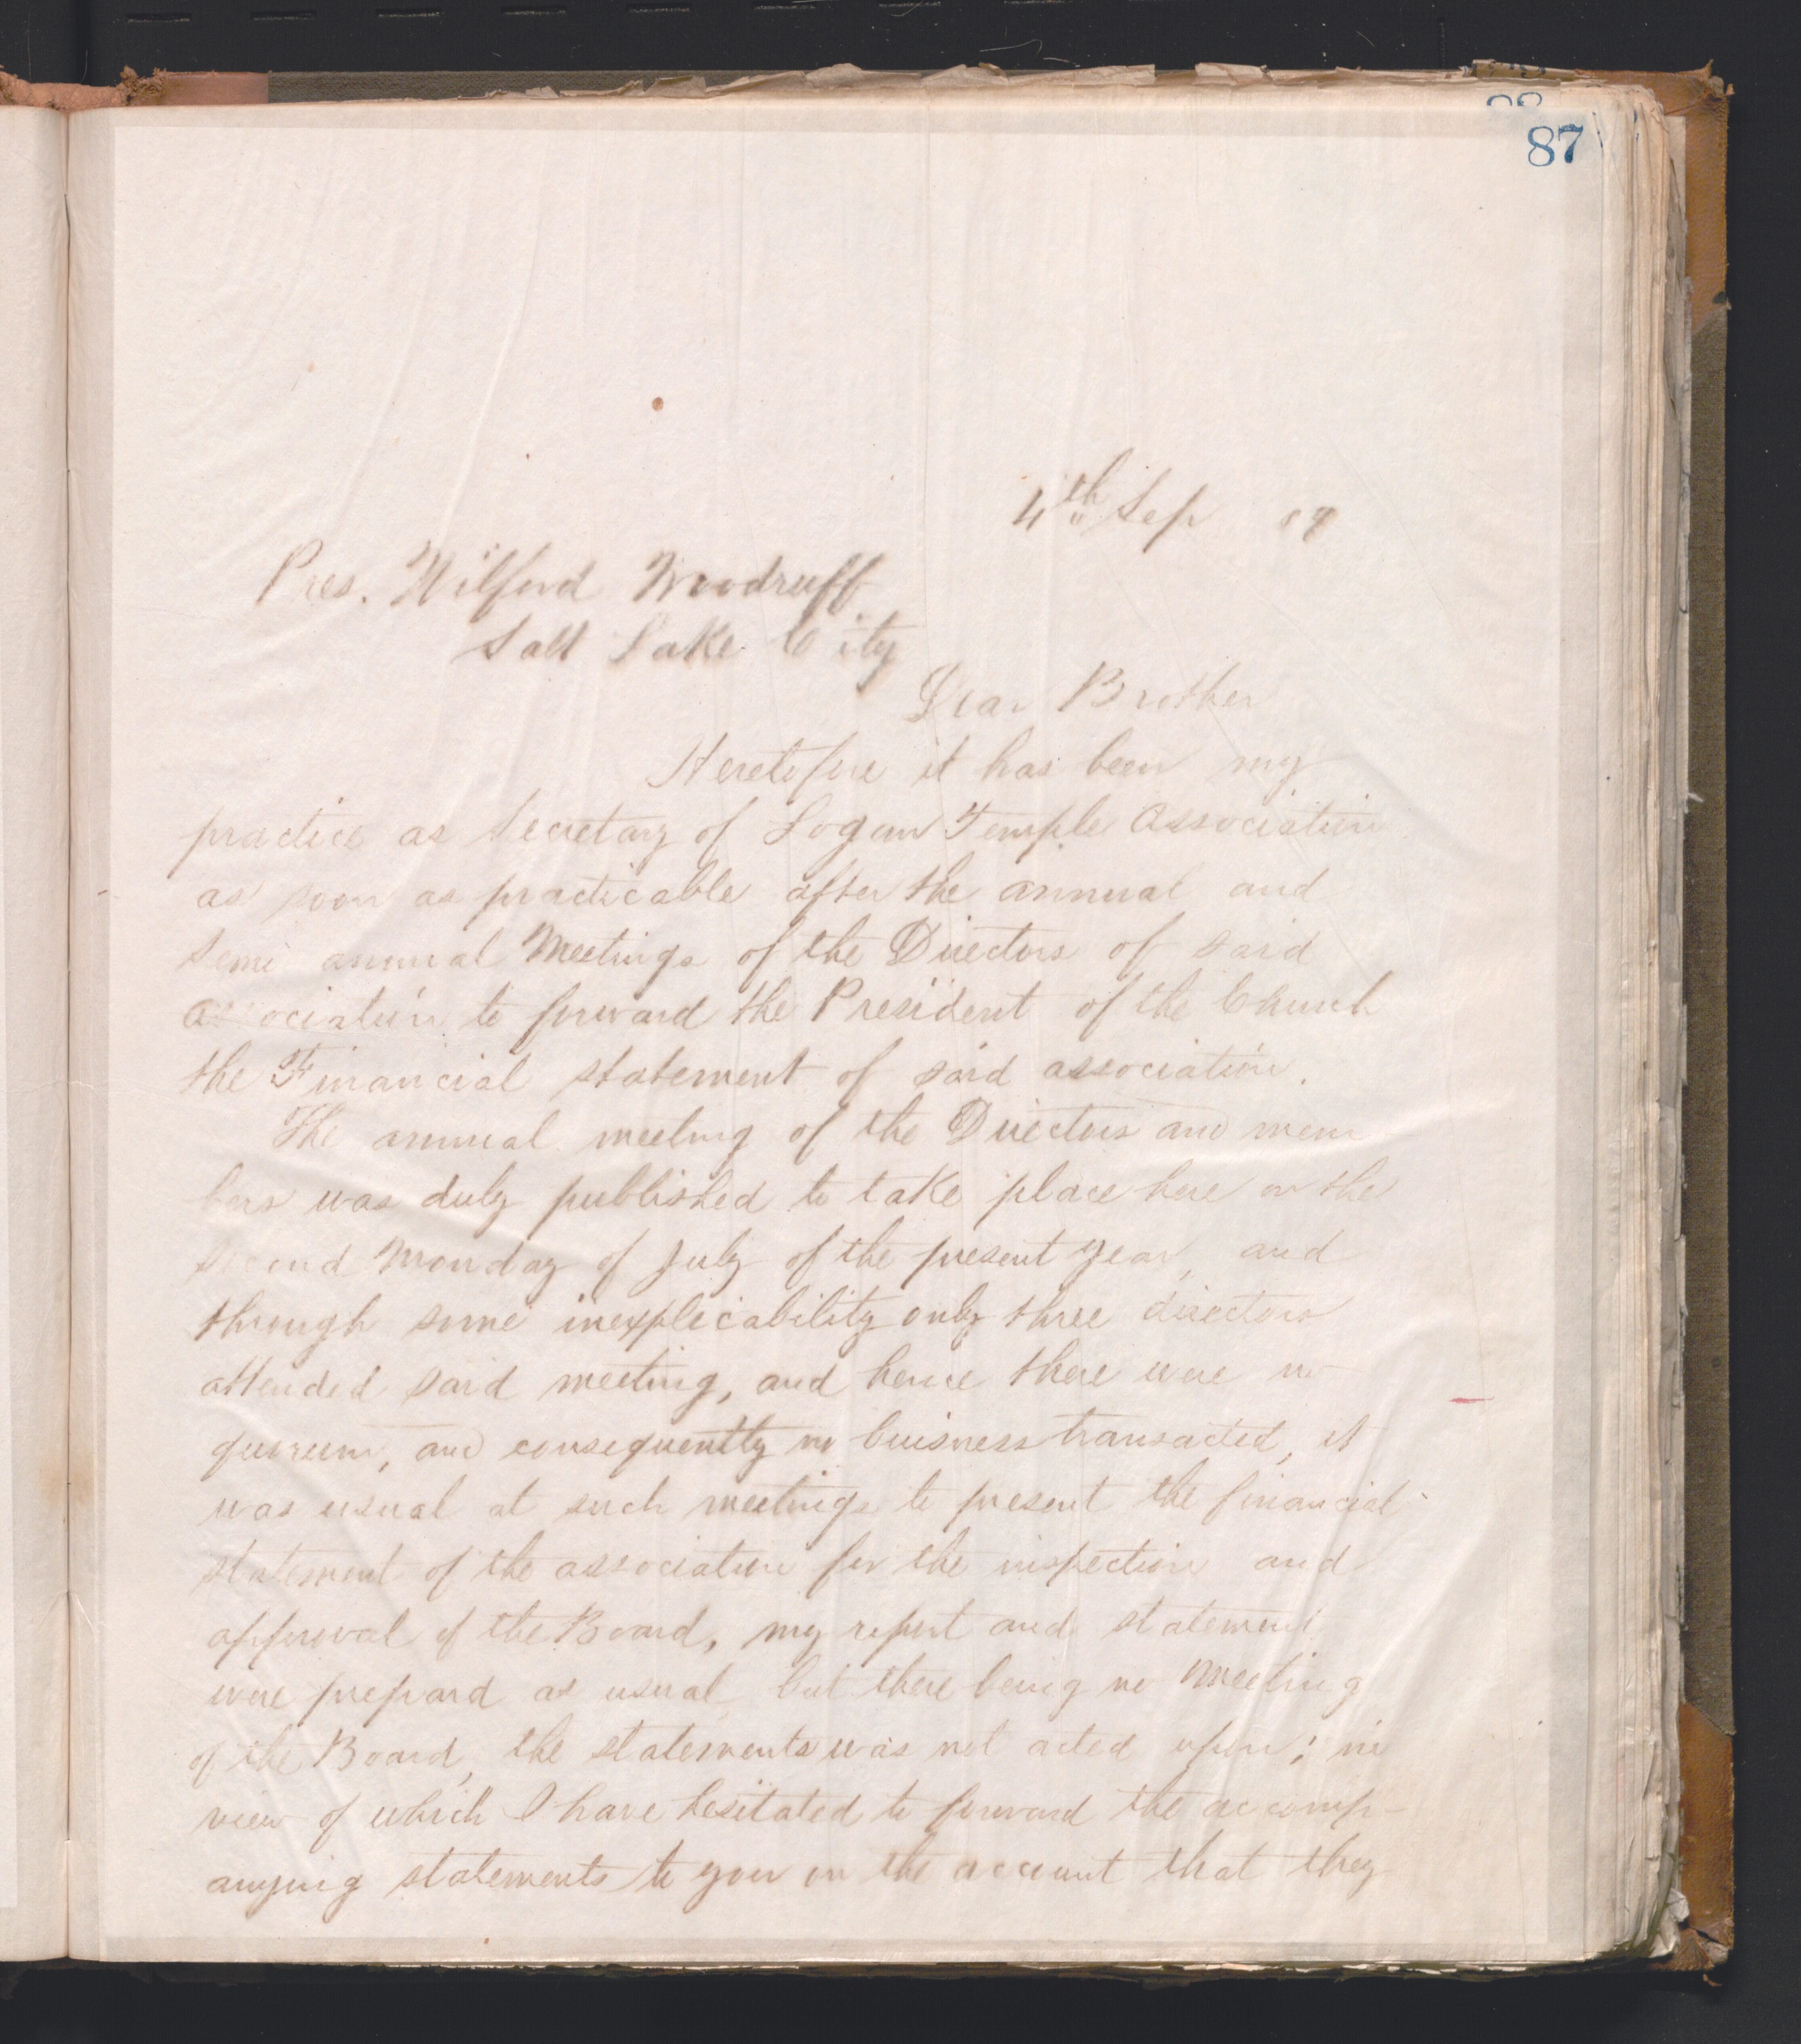 87
4th Sep 89
Pres. Wilford Woodruff
Salt Lake City
Dear Brother
Heretofore it has been my
practice as Secretary of Logan Temple Association
as soon as practicable after the annual and
Semi annual Meetings of the Directors of said
association to forward the President of the Church
the Financial statement of said association.
The annual meeting of the Directors and mem
bers was duly published to take place here on the
second Monday of July of the present year, and
through some inexplicability only three directors
attended said meeting, and hence there were no
quorum, and consequently no buisness transacted, it
was usual at such meetings to present the financial
statement of the association for the inspection and
approval of the Board, my report and statement
were prepard as usual but there being no Meeting
of the Board, the statements was not acted upon; in
view of which I have hesitated to forward the accomp-
anying statements to you on the account that they